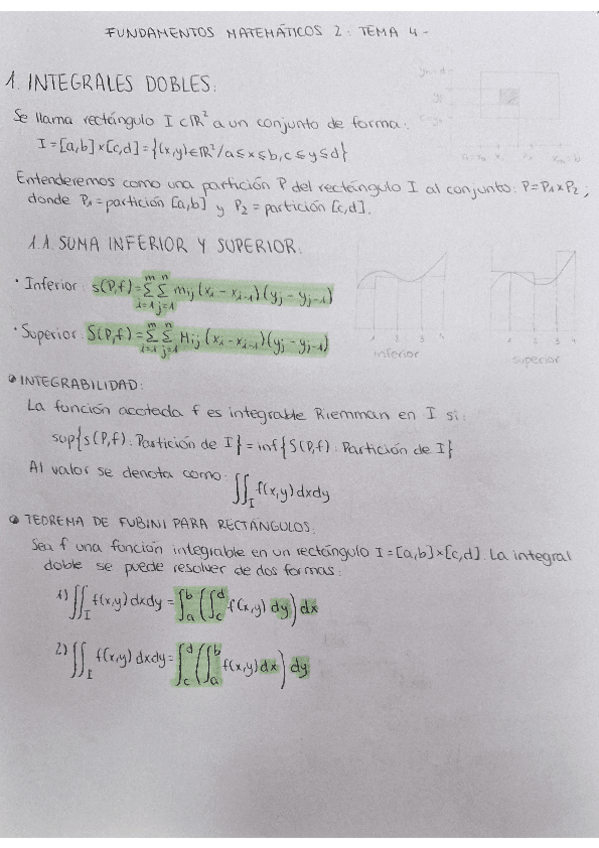 FUNDAMENTOS MATEMÁTICOS 2: TEMA 4-
1. INTEGRALES DOBLES:
Se llama rectángulo I⊂ℝ² a un conjunto de forma:
I=[a,b]×[c,d]={(x,y)∈ℝ²/a≤x≤b,c≤y≤d}
Entenderemos como una partición P del rectángulo I al conjunto: P=P₁×P₂;
donde P₁=partición [a,b] y P₂=partición [c,d].
1.1. SUMA INFERIOR Y SUPERIOR:
· Inferior: s(P,f)=∑_{i=1}^{m} ∑_{j=1}^{n} m_{ij}(x_i-x_{i-1})(y_j-y_{j-1})
· Superior: S(P,f)=∑_{i=1}^{m} ∑_{j=1}^{n} M_{ij}(x_i-x_{i-1})(y_j-y_{j-1})
inferior
superior
INTEGRABILIDAD:
La función acotada f es integrable Riemman en I si:
sup{s(P,f): Partición de I}=inf{S(P,f): Partición de I}
Al valor se denota como: ∬_I f(x,y)dxdy
TEOREMA DE FUBINI PARA RECTÁNGULOS:
Sea f una función integrable en un rectángulo I=[a,b]×[c,d]. La integral
doble se puede resolver de dos formas:
1) ∬_I f(x,y)dxdy=∫_a^b(∫_c^d f(x,y)dy)dx
2) ∬_I f(x,y)dxdy=∫_c^d(∫_a^b f(x,y)dx)dy